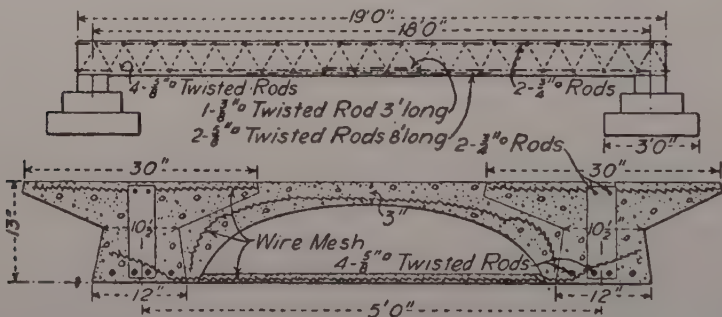 19'0"
18'0"
4-5/8"□ Twisted Rods
2-3/4"□ Rods
1-3/8"□ Twisted Rod 3' long
2-5/8"□ Twisted Rods 8' long
3'0"
2-3/4"□ Rods
30"
30"
13"
3"
10 1/2"
10 1/2"
Wire Mesh
4-5/8"□ Twisted Rods
12"
12"
5'0"